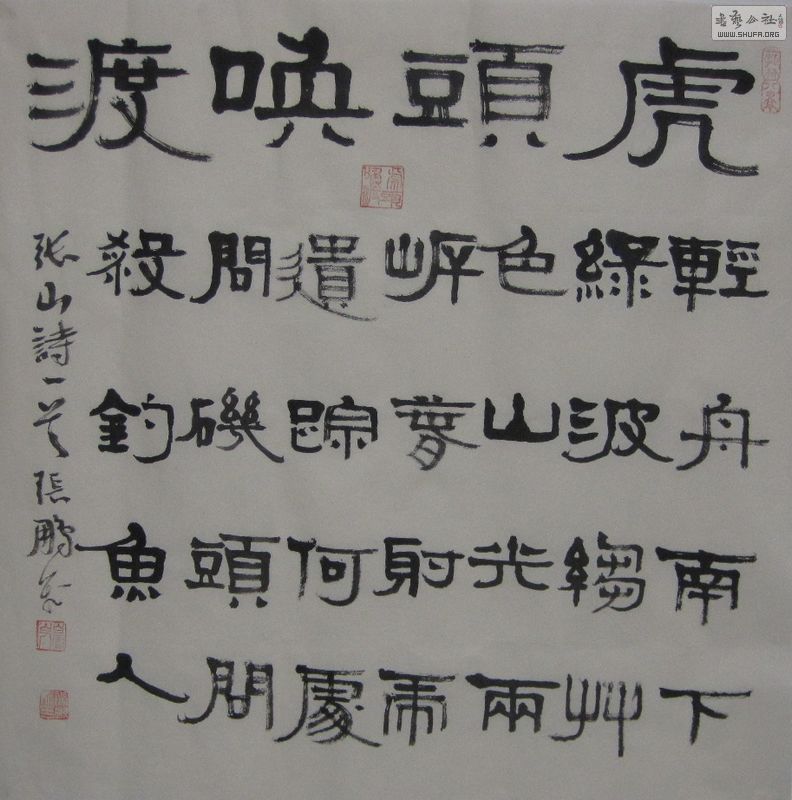 虎頭喚渡
輕舟南下
綠波縐艸
色山光兩
岸萅射虎
遺踪何處
問磯頭問
殺釣魚人
张山詩一首張鵬書
書藝公社
WWW.SHUFA.ORG